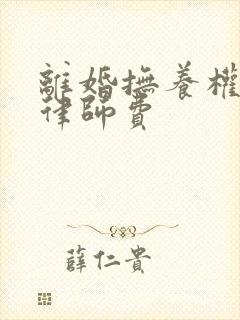 離婚撫養權
律師費
薛仁貴